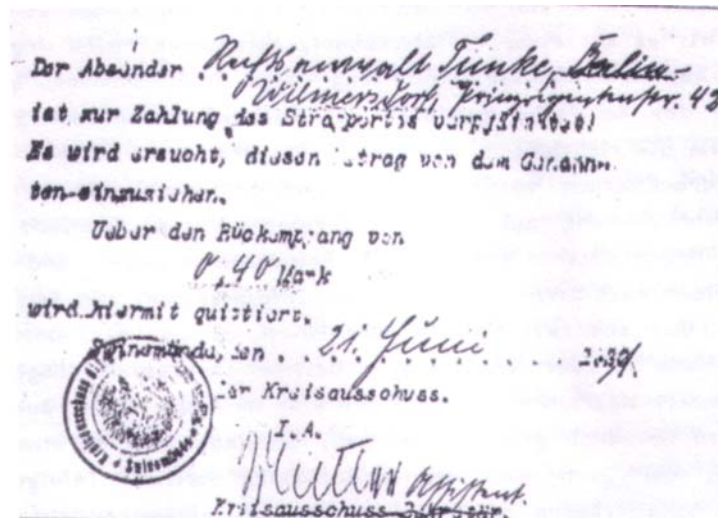 Der Absender . Rechtsanwalt Funke, Berlin
Wilmersdorf, Prinzregentenstr. 42
ist zur Zahlung des Strafportos verpflichtet!
Es wird ersucht, diesen Betrag von dem Genann-
ten einzuziehen.
Ueber den Rückempfang von
0,40 Mark
wird hiermit quittiert.
Swinemünde, den . 21. Juni
Der Kreisausschuss.
I.A.
Assistent.
Kreisausschuss-Sekretär.